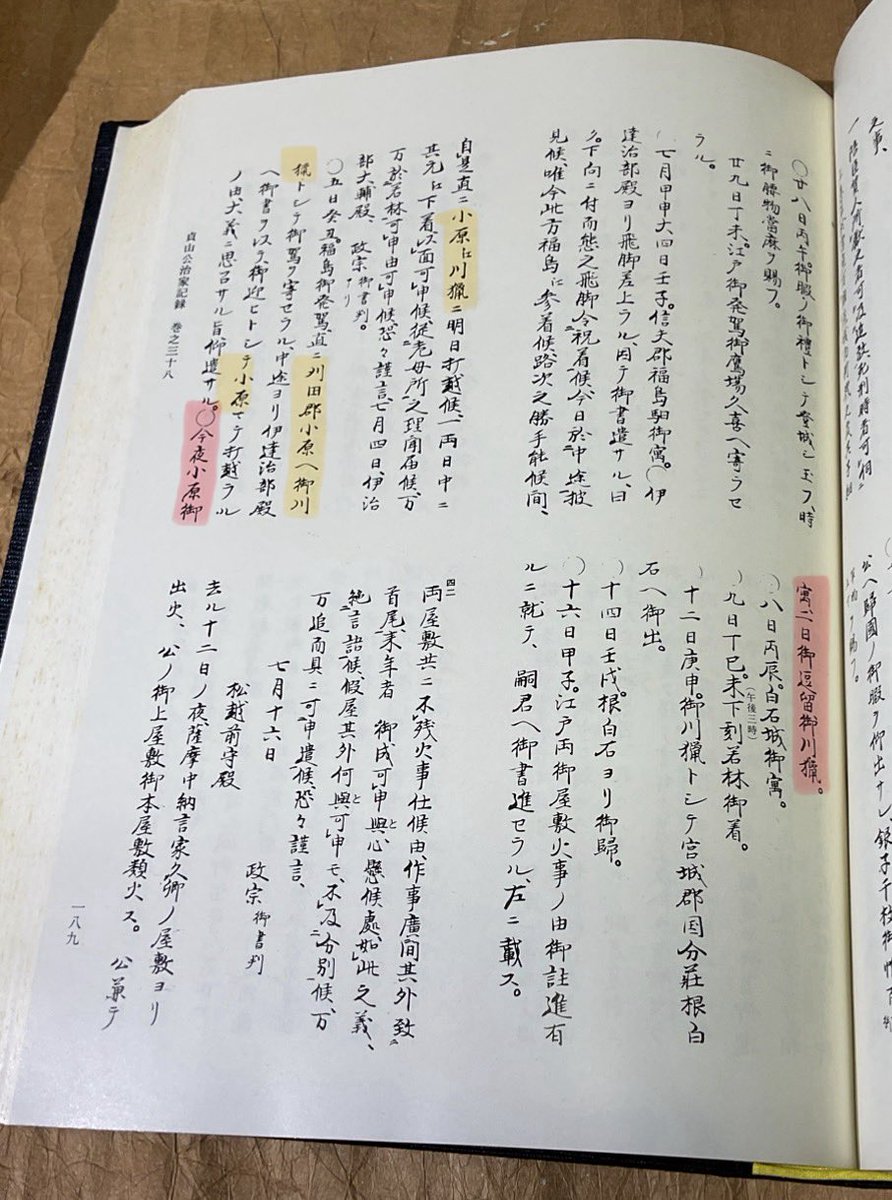 〇廿八日丙午。御暇ノ御禮トシテ登城シ玉フ、時
ニ御腰物當麻ヲ賜フ。
廿九日丁未。江戸御発駕御鷹場久喜へ寄ラセ
ラル。
七月甲申大四日壬子。信夫郡福島駅御寓。〇伊
達治部殿ヨリ飛脚差上ラル、因テ御書遣サル、曰
ク。下向ニ付而態之飛脚、令祝着候、今日於中途披
見候、唯今此方福島ニ参着候、路次之勝手能候間、
自是直ニ小原江川猟ニ明日打越候、一両日中ニ
其元江下着、以面可申候、従老母所之理聞届候、万
万於若林可申由可申候、恐々謹言、七月四日、伊治
部大輔殿、政宗御書判。
アリ
〇五日癸丑。福島御発駕直ニ刈田郡小原へ御川
猟トシテ御駕ヲ寄セラル、中途ヨリ伊達治部殿
へ御書ヲ以テ、御迎ヒトシテ小原マテ打越ラル
ノ由、大義ニ思召サル旨仰遣サル。〇今夜小原御
寓二日御逗留御川猟。
〇八日丙辰。白石城御寓。
〇九日丁巳。未下刻若林御着。
(午後三時)
〇十二日庚申。御川猟トシテ宮城郡国分莊根白
石へ御出。
〇十四日壬戌。根白石ヨリ御歸。
〇十六日甲子。江戸両御屋敷火事ノ由御註進有
ルニ就テ、嗣君へ御書進セラル、左ニ載ス。
四二
両屋敷共ニ不残火事仕候由、作事廣間其外致
首尾、来年者 御成可申與心懸候處、如此之義、
絶言語候、假屋其外何與可申モ、不及分別候、万
万追而具ニ可申遣候、恐々謹言、
七月十六日
政宗 御書判
松越前守殿
去ル十二日ノ夜薩摩中納言家久卿ノ屋敷ヨリ
出火、公ノ御上屋敷御本屋敷類火ス。 公兼テ
貞山公治家記録 巻之三十八
一八九